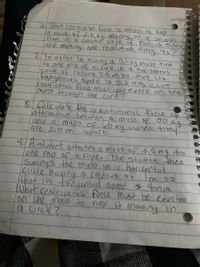 6. What centripetal force is needed to keep
a mass of 2.5 kg moving at a constant
speed in a circular path of radius 5.0 m
and making one revolution every
7. In order to swing a 0.5 kg mass tied
to one end of a rope in a horizontal
circle of radius 2.0 m so that its
tangential speed is
centripetal force must you exert on the
mass through the cord?
8. Calculate the gravitational force of
attraction between a mass of 70 kg
and a mass of 60 kg when they
are 2.0 m apart.
9. A student attaches a mass of 0.5 kg to
one end of a rope. The student then
swings the mass in a horizontal
circle having a radius of so
that its tangential speed is 4.0 m/s
What centripetal force must be exerted
on the mass to keep it moving in
a circle?